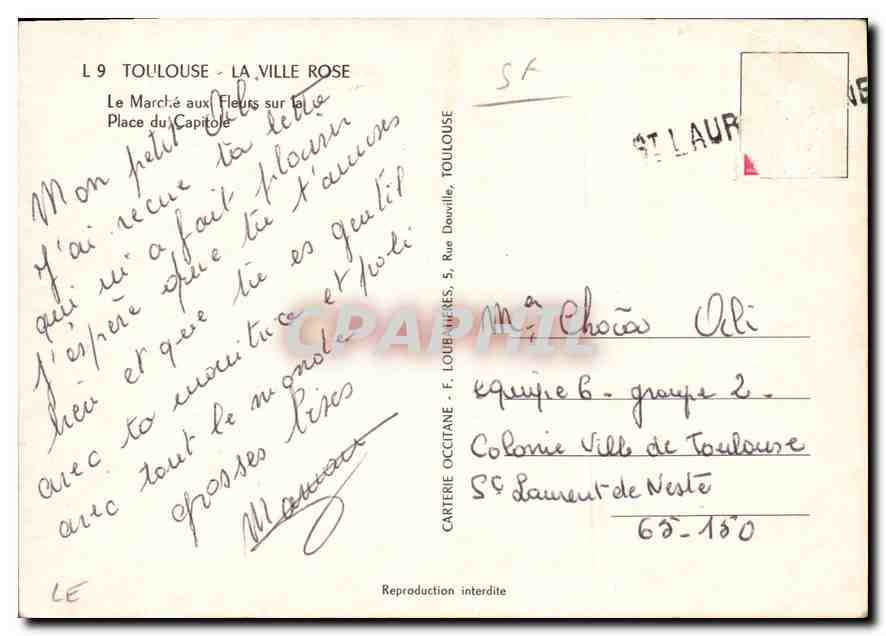 L 9 TOULOUSE - LA VILLE ROSE
Le Marché aux Fleurs sur la
Place du Capitole
Mon petit Oli
J'ai reçue ta lettre
qui m'a fait plaisir
j'espère que tu t'amuses
bien et que tu es gentil
avec ta monitrice et poli
avec tout le monde
grosses bises
Maman
LE
CARTERIE OCCITANE - F. LOUBATIÈRES, 5, Rue Douville, TOULOUSE
SF
ST LAUR NE
Oli
equipe 6 - groupe 2 -
Colonie Ville de Toulouse
St Laurent de Neste
65-150
Reproduction interdite
CPAPHIL